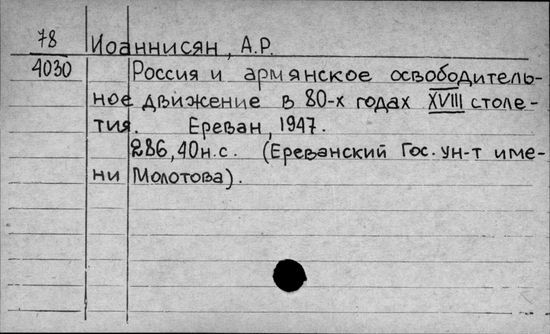 78 Иоаннисян, А.Р.
4030 Россия и армянское освободитель-
ное движение в 80-х годах XVIII столе-
тия. Ереван, 1947.
286, 40 н.с. (Ереванский Гос. ун-т име-
ни Молотова).